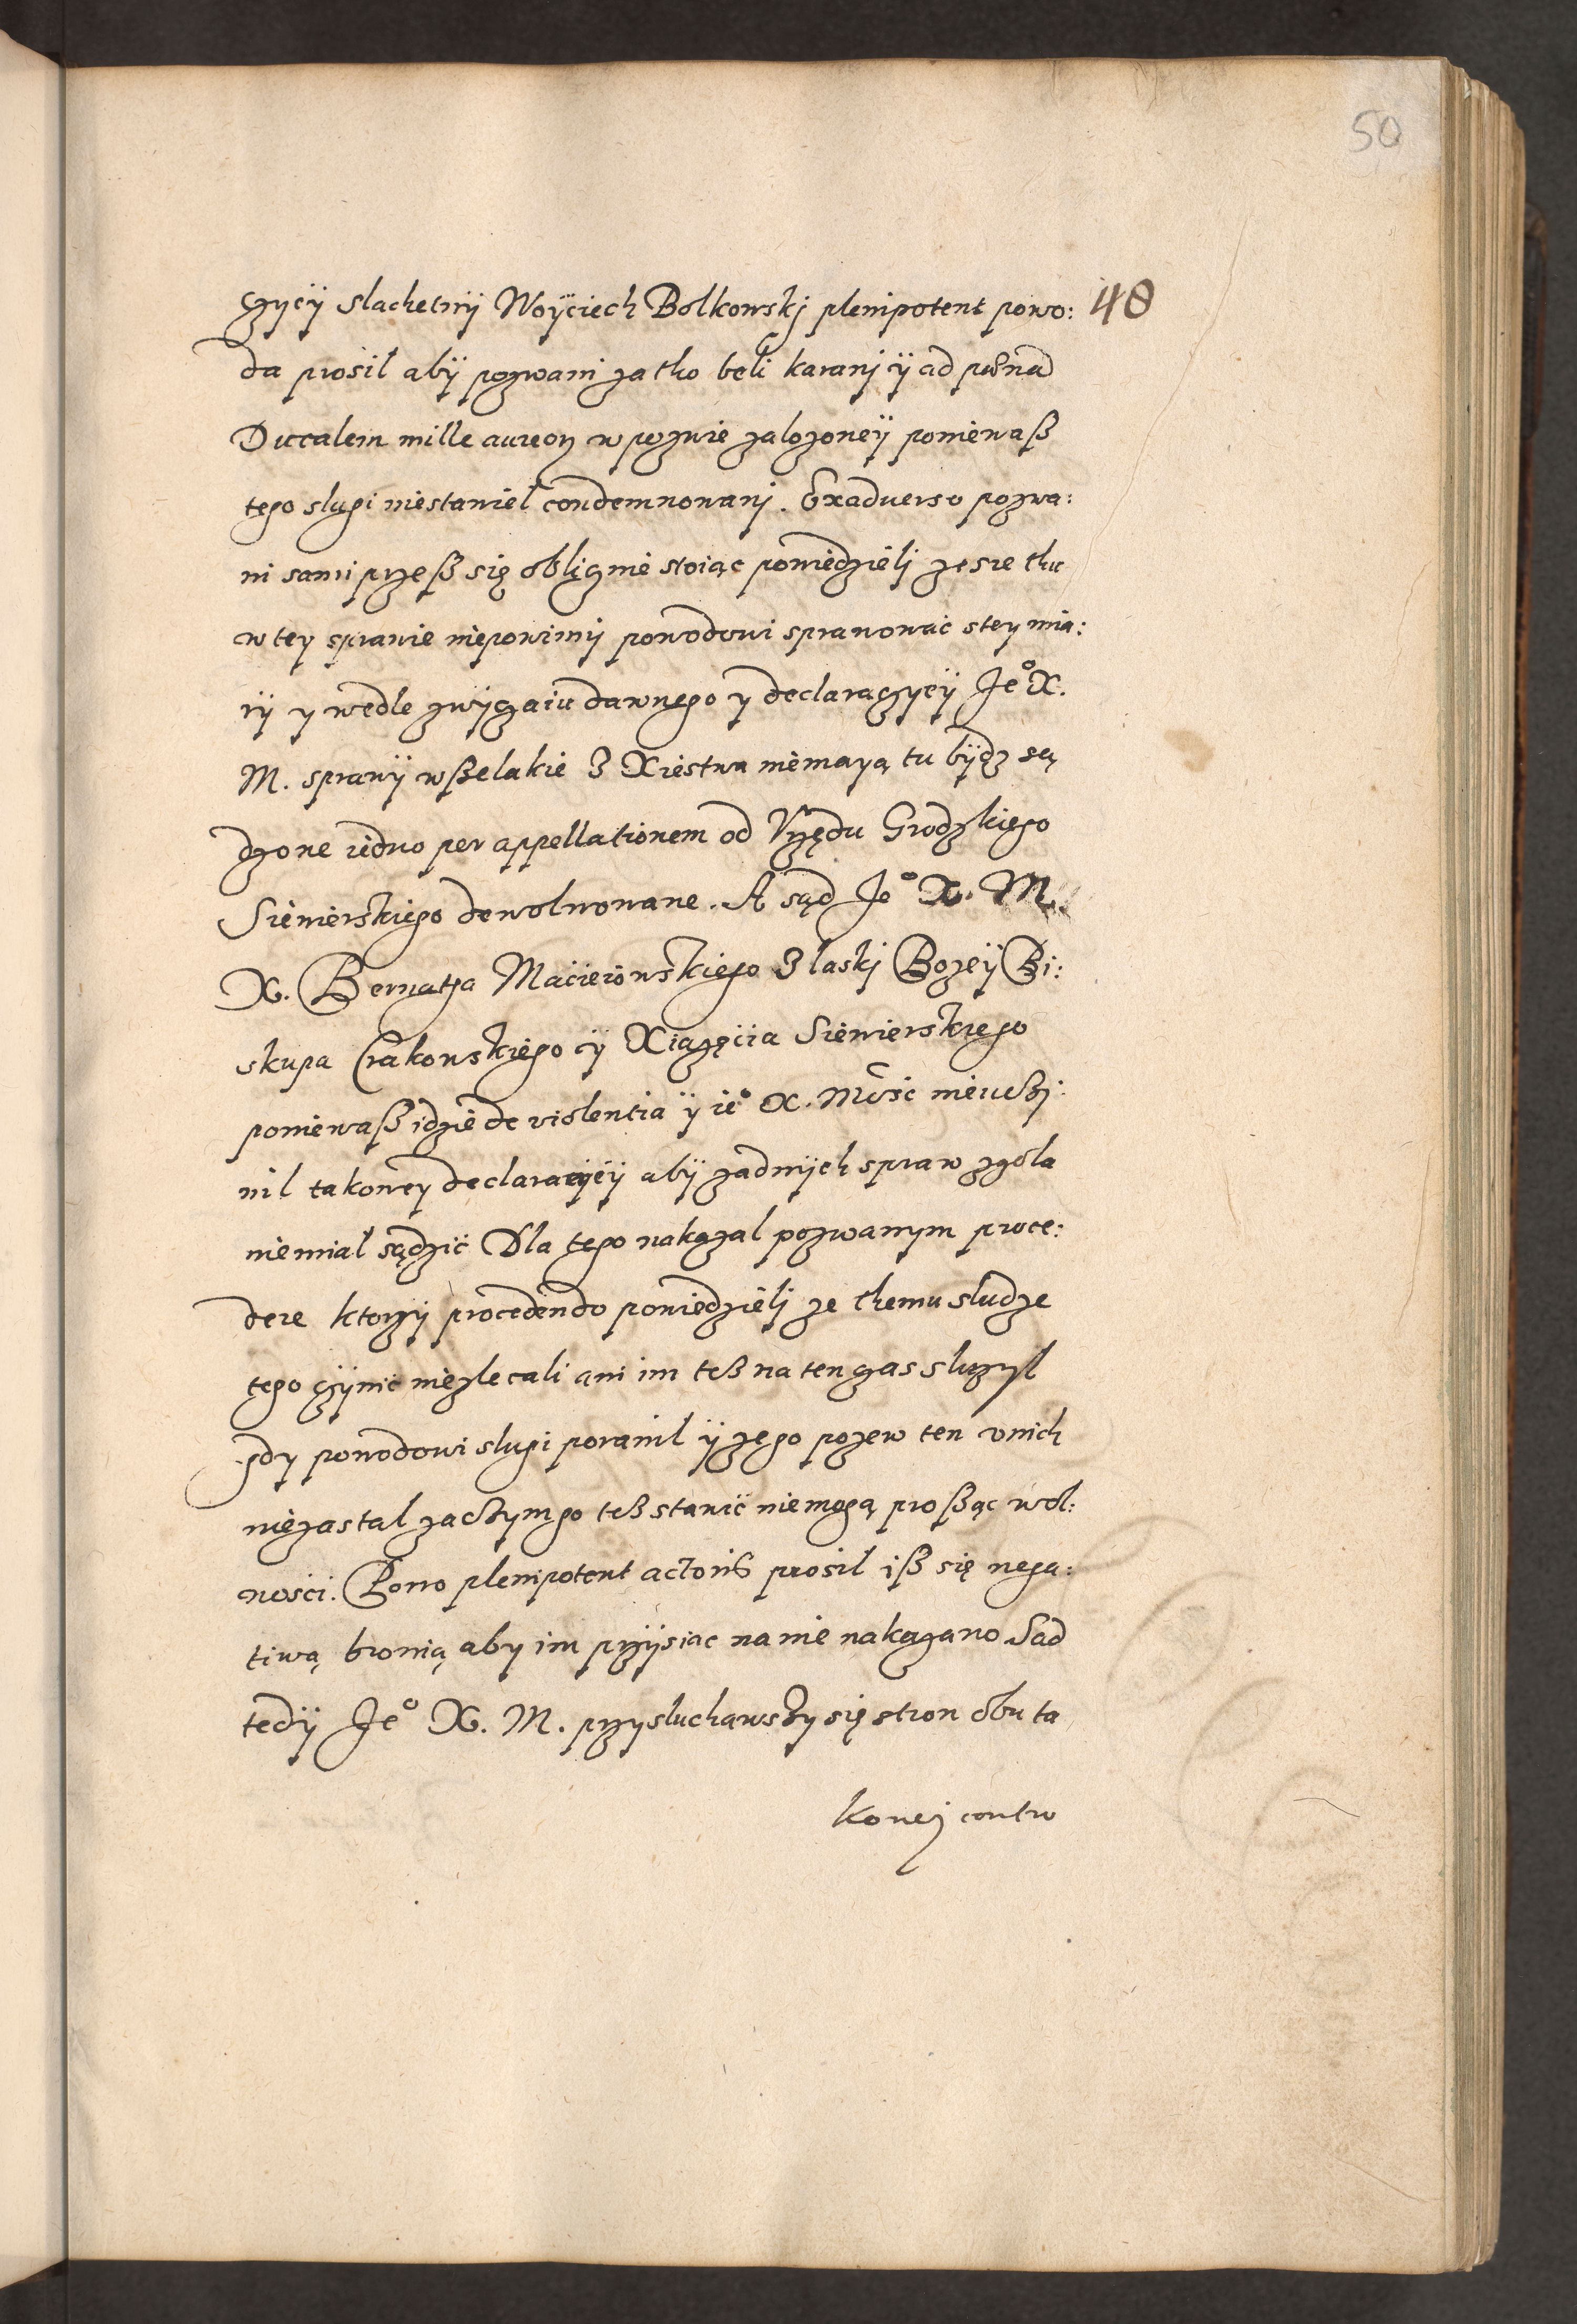 50
czycÿ slachetnÿ Woÿciech Bolkowskj plenipotent powo: 48
da prosil abÿ pozwani za tho beli karanj ÿ ad pœnã
Ducalem mille aureoꝝ w pozwie zalozoneÿ poniewaß
tego slugi niestawiel condemnowanj. Exaduerso pozwa:
ni sami przeß się oblicznie stoiąc powiedzieli ze sie thu
w tey sprawie niepowinnÿ powodowi sprawowac s tey mia:
rÿ y wedle zwÿczaiu dawnego y declaraczycÿ Je° X.
M. sprawÿ wßelakie Z Xiestwa niemayą tu bÿdz są
dzone iedno per appellationem od Vrzędu Grodzkiego
Siewierskiego dewolwowane. A sąd Je° X. M.
X. Bernatha Macieiowskiego Z laskj Bozeÿ Bi:
skupa Crakowskiego ÿ Xiazęcia Siewierskiego
poniewaß idzie de violentia ÿ ie° X. Mosc nieuczÿ:
nil takowey declaracÿeÿ abÿ zadnÿch spraw zgola
niemial sądzić Dla tego nakazal pozwanym proce:
dere ktorzÿ procedendo powiedzieli ze themu sludze
tego czÿnic niezlecali ani im teß na ten czas sluzyl
gdy powodowi slugi poranil ÿ zego pozew ten v nich
niezastal zaczym go teß stawić niemogą proßąc wol:
ności. Pono plenipotent actoris prosil iß się nega:
tiwą bronią aby im przÿsiac na nie nakazano Sad
tedÿ Je° X. M. przysluchawszy się stron obu ta
kowej contro